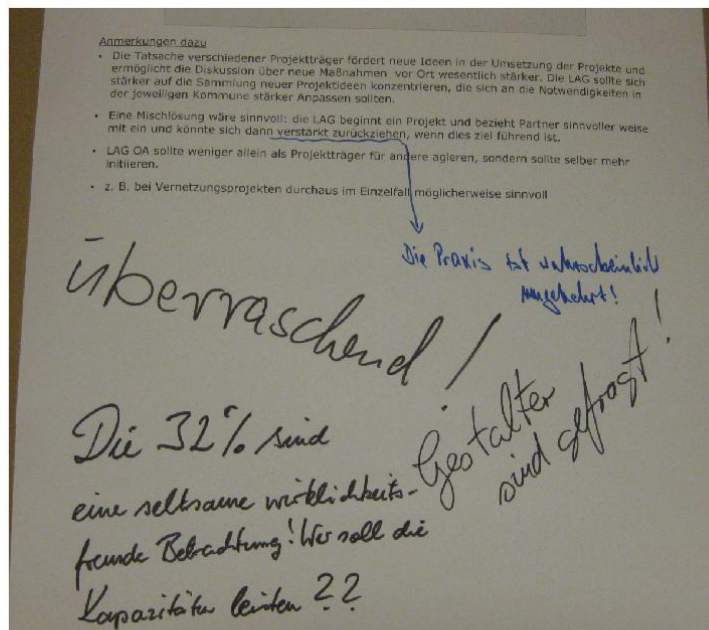 Anmerkungen dazu
• Die Tatsache verschiedener Projektträger fördert neue Ideen in der Umsetzung der Projekte und
ermöglicht die Diskussion über neue Maßnahmen vor Ort wesentlich stärker. Die LAG sollte sich
stärker auf die Sammlung neuer Projektideen konzentrieren, die sich an die Notwendigkeiten in
der jeweiligen Kommune stärker Anpassen sollten.
• Eine Mischlösung wäre sinnvoll: die LAG beginnt ein Projekt und bezieht Partner sinnvoller weise
mit ein und könnte sich dann verstärkt zurückziehen, wenn dies ziel führend ist.
• LAG OA sollte weniger allein als Projektträger für andere agieren, sondern sollte selber mehr
initiieren.
• z. B. bei Vernetzungsprojekten durchaus im Einzelfall möglicherweise sinnvoll
Die Praxis ist wahrscheinlich
umgekehrt!
überraschend!
Gestalter
sind gefragt!
Die 32% sind
eine seltsame wirklichkeits-
fremde Betrachtung! Wer soll die
Kapazitäten leisten??